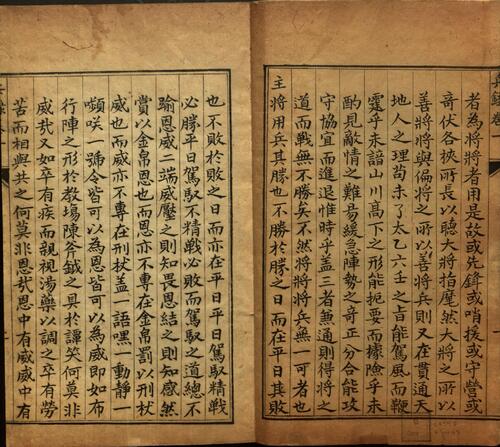 者為將將者用是故或先鋒或哨援或守營或
奇伏各挾所長以聽大將指麾然大將之所以
善將將與偏將之所以善將兵則又在貫通天
地人之理苟未了太乙六壬之占能駕風而鞭
霆乎未諳山川高下之形能扼要而據險乎未
酌見敵情之難易緩急陣勢之奇正分合能攻
守協宜而進退惟時乎蓋三者兼通則得將之
道而戰無不勝矣不然將將將兵無一可者也
主將用兵其勝也不勝於勝之日而在平日其敗
也不敗於敗之日而亦在平日平日駕馭精戰
必勝平日駕馭不精戰必敗而駕馭之道總不
踰恩威二端威壓之則知畏恩結之則知感然
賞以金帛恩也而恩亦不專在金帛罰以刑杖
威也而威亦不專在刑杖蓋一語嘿一動靜一
嚬咲一號令皆可以為恩皆可以為威即如布
行陣之形於教場陳斧鉞之具於譚笑何莫非
威哉又如卒有疾而親視湯藥以調之卒有勞
苦而相與共之何莫非恩哉恩中有威威中有